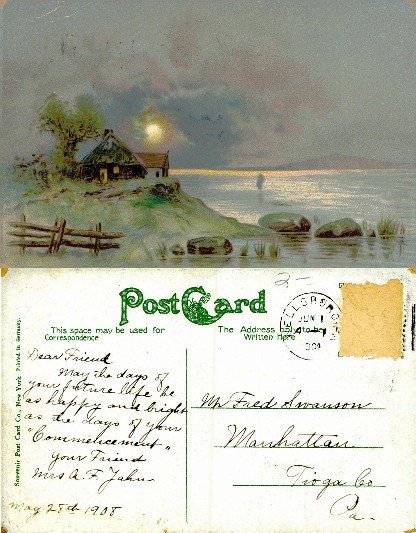 Post Card
This space may be used for
Correspondence
The Address only to be
Written Here
Souvenir Post Card Co., New York Printed in Germany.
2-
ELLSBORO
JUN 1
Dear Friend
May the days of
your future life be
as happy and bright
as the days of your
"Commencement"
your Friend
Mrs A. F. Jahn
May 28th 1908
Mr Fred Swanson
Manhattan
Tioga Co
Pa.